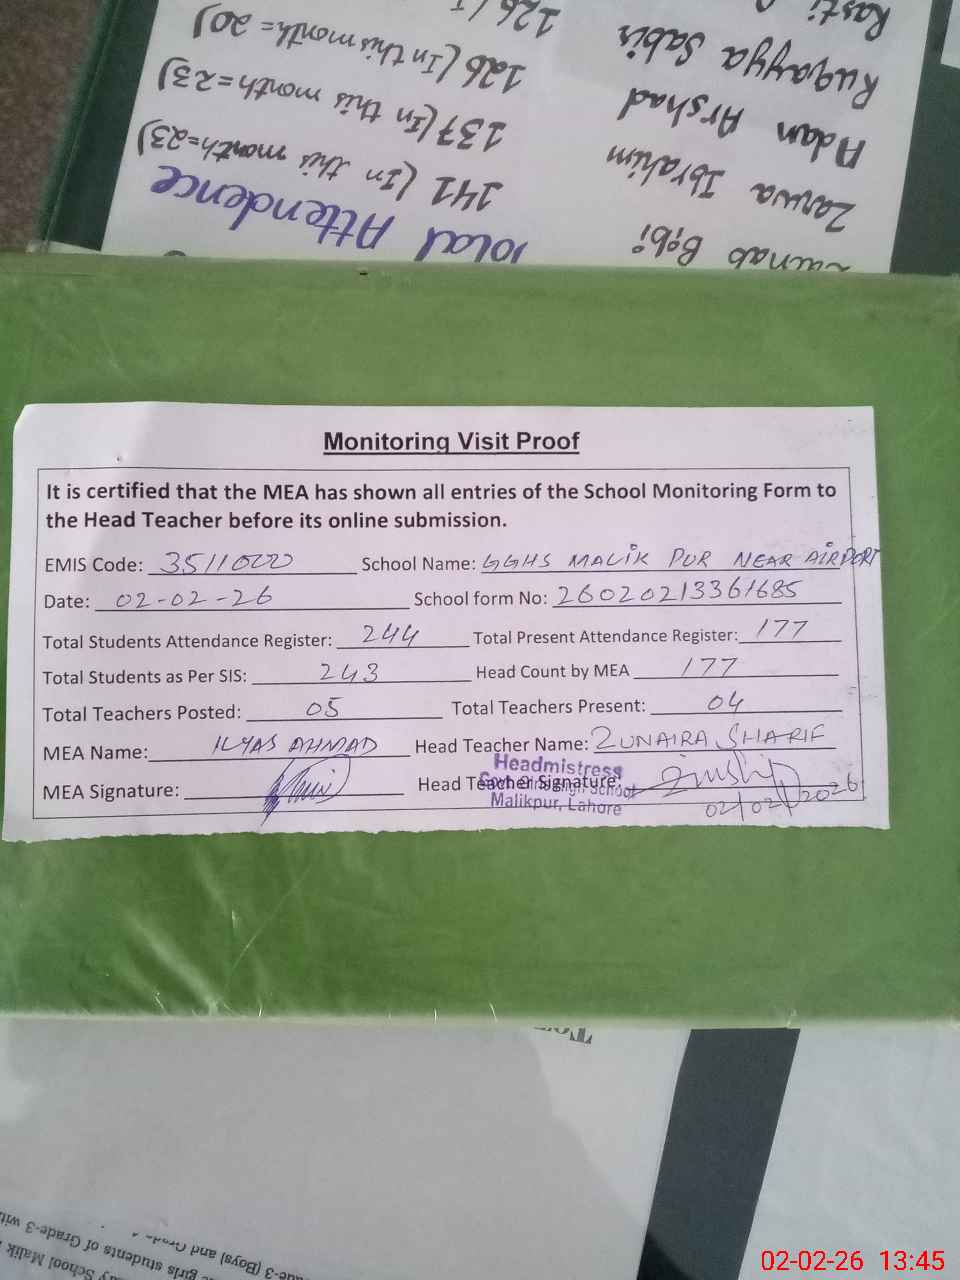 126
126 (In this month = 20)
137 (In this month = 23)
141 (In this month = 23)
Total Attendence
Rasti
Ruqayya Sabir
Adan Arshad
Zarwa Ibrahim
Zainab Bibi
Monitoring Visit Proof
It is certified that the MEA has shown all entries of the School Monitoring Form to
the Head Teacher before its online submission.
EMIS Code: 35110000 School Name: GGHS MALIK PUR NEAR AIRPORT
Date: 02-02-26 School form No: 26020213361685
Total Students Attendance Register: 244 Total Present Attendance Register: 177
Total Students as Per SIS: 243 Head Count by MEA 177
Total Teachers Posted: 05 Total Teachers Present: 04
MEA Name: ILYAS AHMAD Head Teacher Name: ZUNAIRA SHARIF
MEA Signature: Head Teacher Signature:
Headmistress
Govt. Girls High School
Malikpur, Lahore
02/02/2026
(Boys) and Grade
girls students of Grade-3
School Malik
02-02-26 13:45